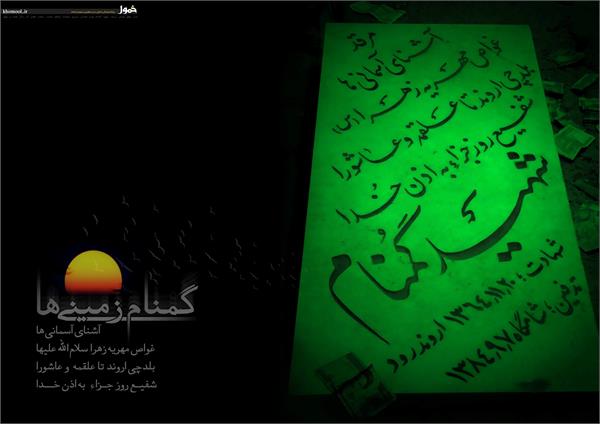 خمول
khomool.ir
مرقد
آشنای آسمانی ها
غواص مهریه زهرا (س)
بلدچی اروند تا علقمه و عاشورا
شفیع روز جزاء به اذن خدا
شهید گمنام
شهادت: ۱۳۶۴،۱۱،۲۰ اروندرود
تدفین: شامگاه ۱۳۸۴،۹،۷
گمنام زمینی‌ها
آشنای آسمانی‌ها
غواص مهریه زهرا سلام الله علیها
بلدچی اروند تا علقمه و عاشورا
شفیع روز جزاء به اذن خدا